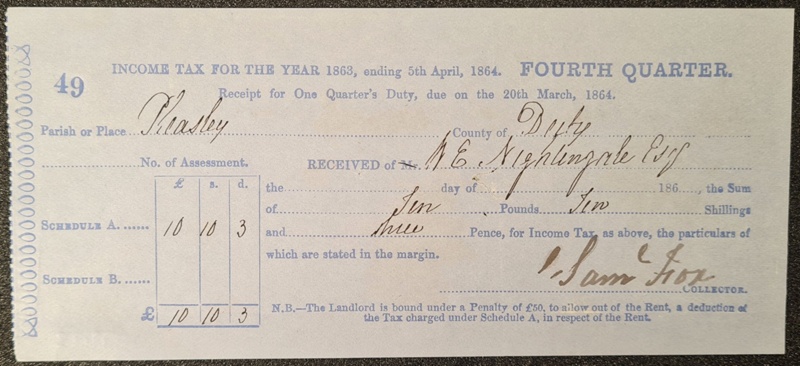 INCOME TAX FOR THE YEAR 1863, ending 5th April, 1864. FOURTH QUARTER.
49
Receipt for One Quarter's Duty, due on the 20th March, 1864.
Parish or Place Pleasley County of Derby
No. of Assessment. RECEIVED of Mr. W E. Nightingale Esqr
£ s. d. the day of 186 , the Sum
of Ten Pounds Ten Shillings
SCHEDULE A. 10 10 3 and three Pence, for Income Tax, as above, the particulars of
which are stated in the margin.
SCHEDULE B.
Saml Fox
COLLECTOR.
£ 10 10 3
N.B.—The Landlord is bound under a Penalty of £50, to allow out of the Rent, a deduction of
the Tax charged under Schedule A, in respect of the Rent.